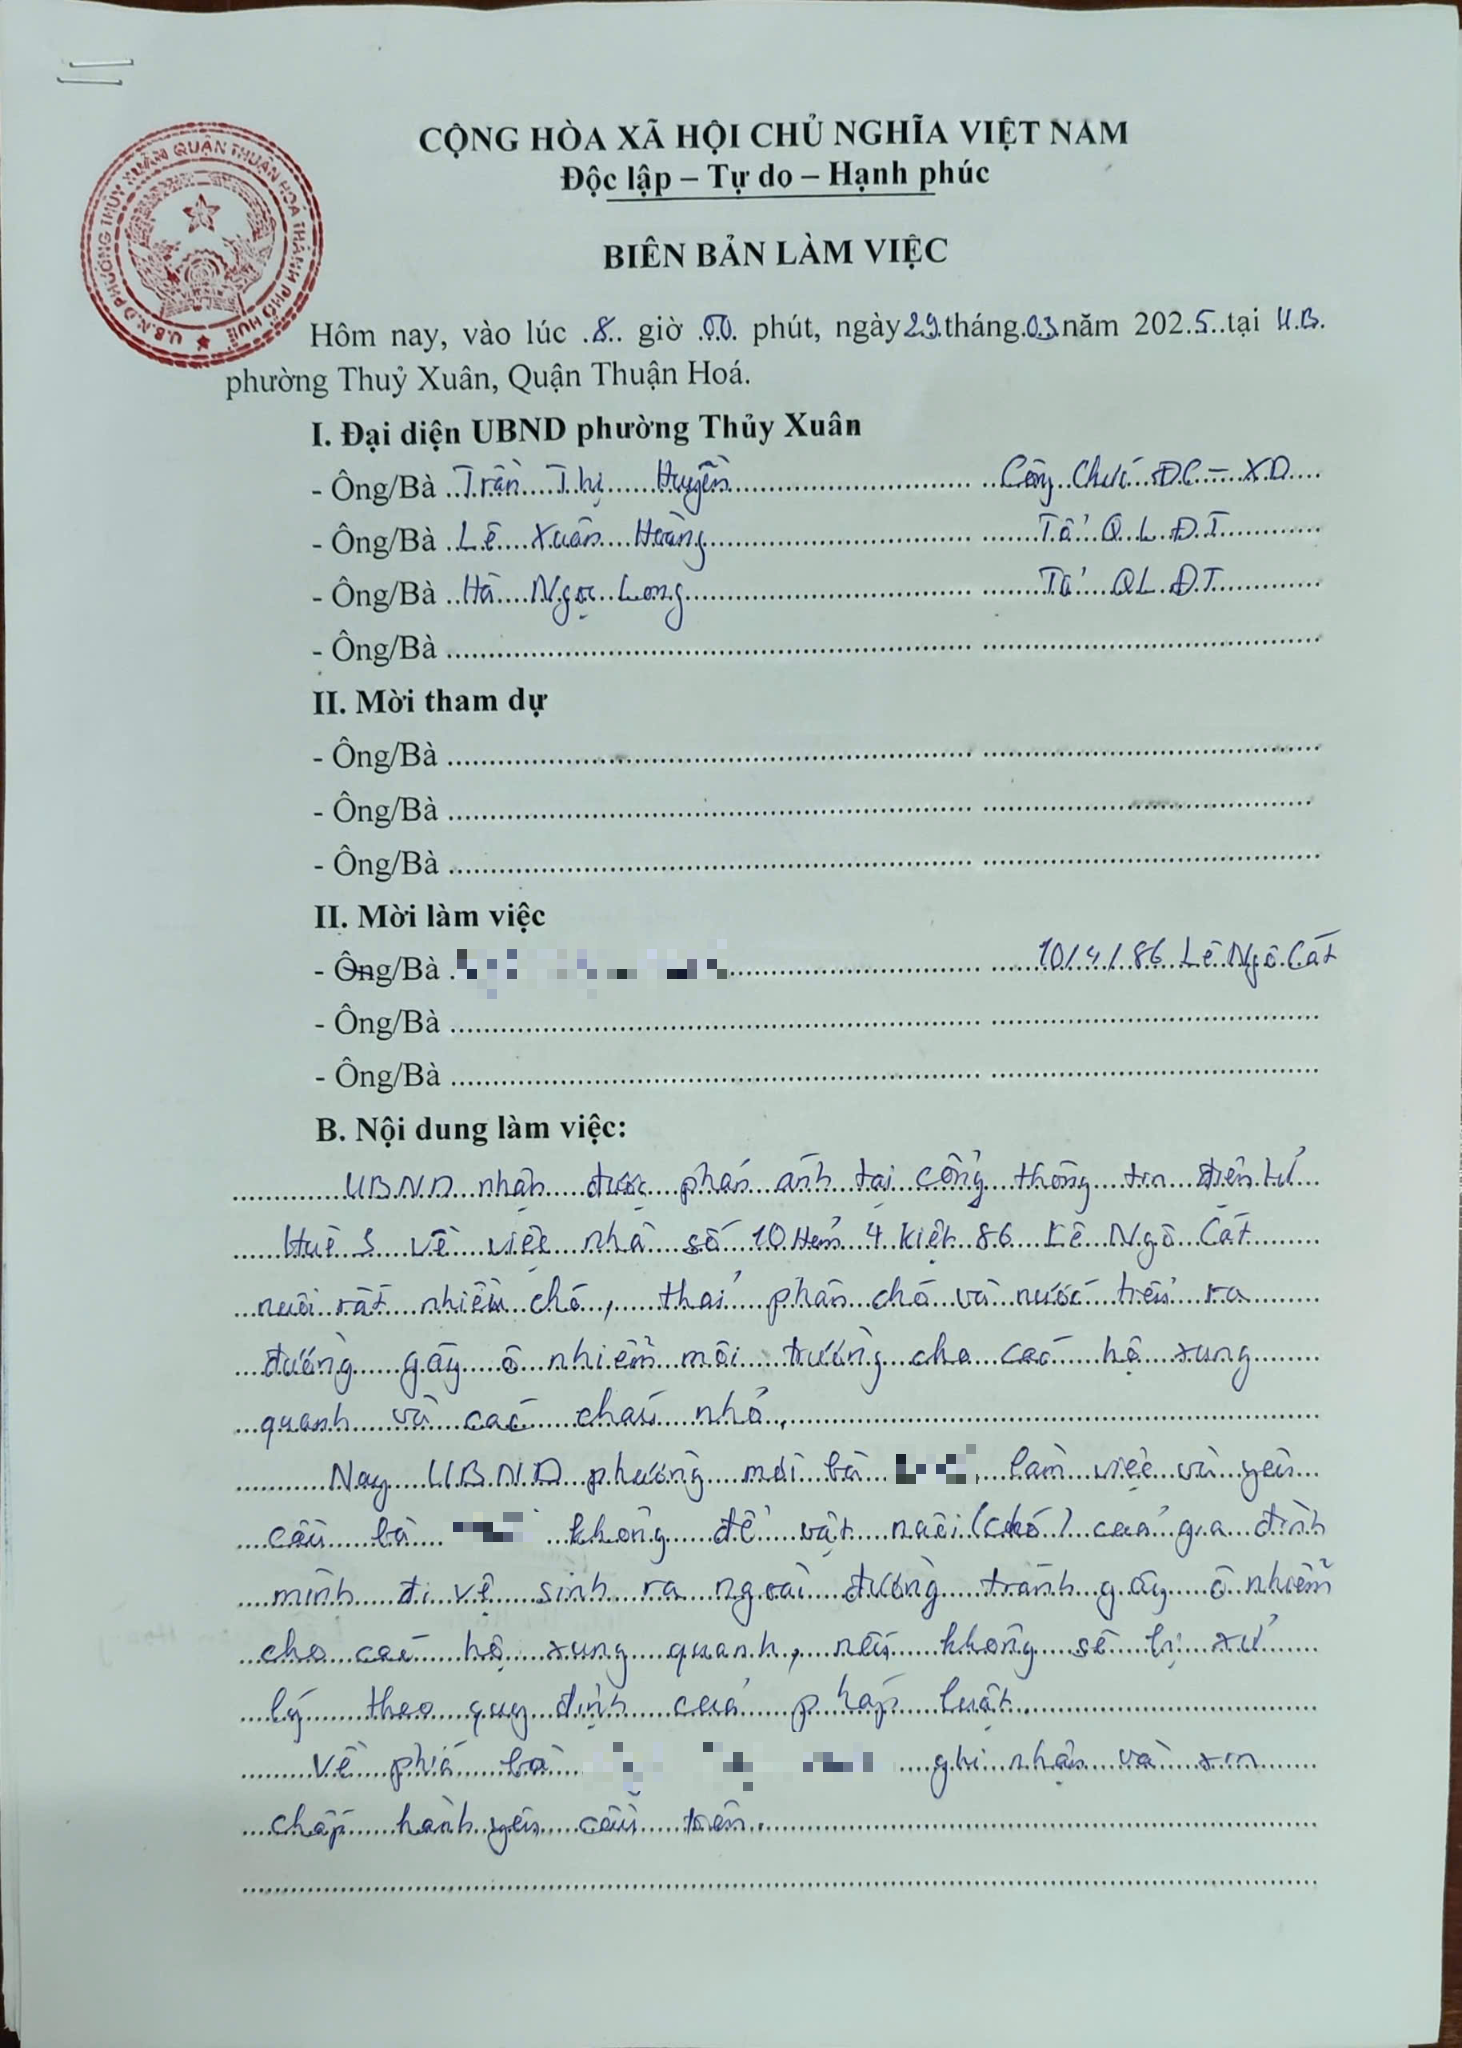 CỘNG HÒA XÃ HỘI CHỦ NGHĨA VIỆT NAM
Độc lập – Tự do – Hạnh phúc
U.B.N.D PHƯỜNG THỦY XUÂN QUẬN THUẬN HOÁ THÀNH PHỐ HUẾ
BIÊN BẢN LÀM VIỆC
Hôm nay, vào lúc 8 giờ 00 phút, ngày 29 tháng 03 năm 2025 tại U.B.
phường Thuỷ Xuân, Quận Thuận Hoá.
I. Đại diện UBND phường Thủy Xuân
- Ông/Bà Trần Thị Huyền Công Chức ĐC - XD
- Ông/Bà Lê Xuân Hoàng Tổ QLĐT
- Ông/Bà Hà Ngọc Long Tổ QLĐT
- Ông/Bà
II. Mời tham dự
- Ông/Bà
- Ông/Bà
- Ông/Bà
II. Mời làm việc
- Ông/Bà 10/4/86 Lê Ngô Cát
- Ông/Bà
- Ông/Bà
B. Nội dung làm việc:
UBND nhận được phản ánh tại cổng thông tin điện tử
Huế S về việc nhà số 10 Hẻm 4 kiệt 86 Lê Ngô Cát
nuôi rất nhiều chó, thải phân chó và nước tiểu ra
đường gây ô nhiễm môi trường cho các hộ xung
quanh và các cháu nhỏ.
Nay UBND phường mời bà làm việc và yêu
cầu bà không để vật nuôi (chó) của gia đình
mình đi vệ sinh ra ngoài đường tránh gây ô nhiễm
cho các hộ xung quanh, nếu không sẽ bị xử
lý theo quy định của pháp luật.
Về phía bà ghi nhận và xin
chấp hành yêu cầu trên.